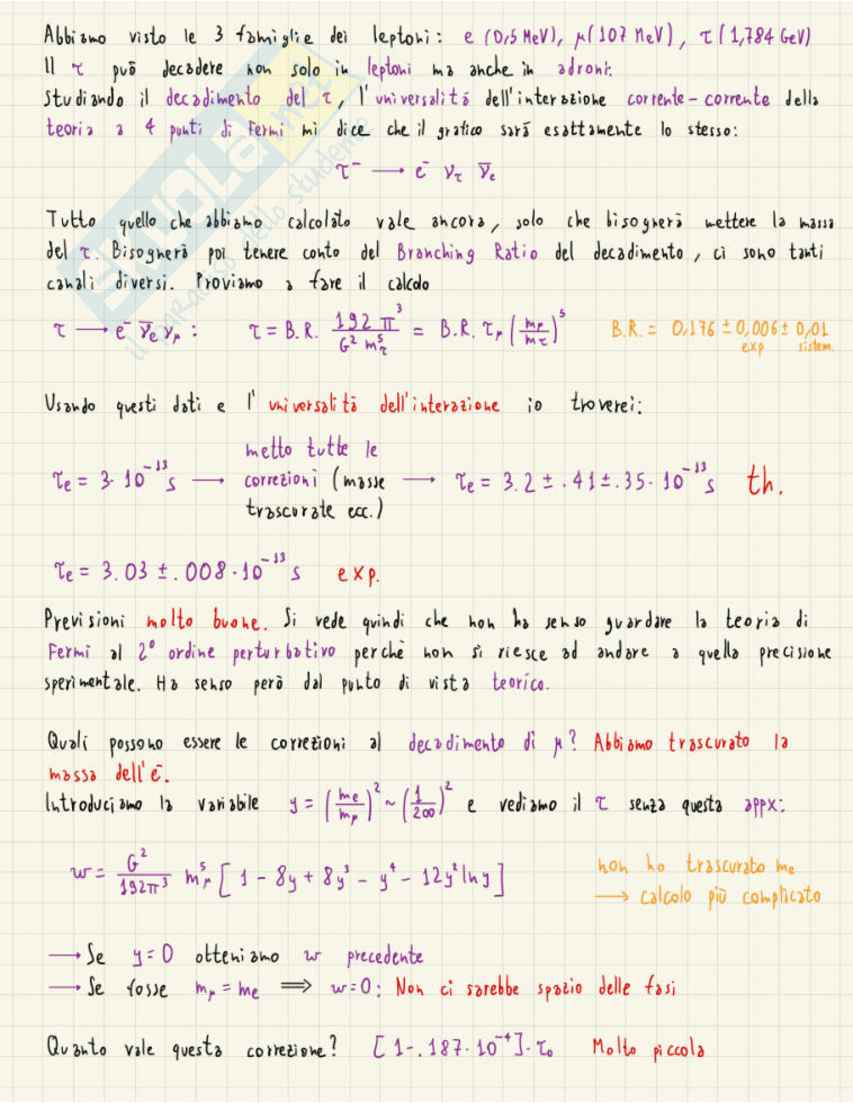 Abbiamo visto le 3 famiglie dei leptoni: e (0,5 MeV), μ(107 MeV), τ(1,784 GeV)
Il τ può decadere non solo in leptoni ma anche in adroni.
Studiando il decadimento del τ, l'universalità dell'interazione corrente-corrente della
teoria a 4 punti di Fermi mi dice che il grafico sarà esattamente lo stesso:
τ⁻ → e⁻ ν_τ ν̄_e
Tutto quello che abbiamo calcolato vale ancora, solo che bisognerà mettere la massa
del τ. Bisognerà poi tenere conto del Branching Ratio del decadimento, ci sono tanti
canali diversi. Proviamo a fare il calcolo
τ → e⁻ ν̄_e ν_μ : τ = B.R. 192 π³ / G² m_τ⁵ = B.R. τ_μ (m_μ/m_τ)⁵ B.R. = 0,176 ± 0,006 ± 0,01
exp sistem.
Usando questi dati e l'universalità dell'interazione io troverei:
metto tutte le
τ_e = 3·10⁻¹³ s → correzioni (masse → τ_e = 3.2 ± .41 ± .35·10⁻¹³ s th.
trascurate ecc.)
τ_e = 3.03 ± .008·10⁻¹³ s exp.
Previsioni molto buone. Si vede quindi che non ha senso guardare la teoria di
Fermi al 2° ordine perturbativo perchè non si riesce ad andare a quella precisione
sperimentale. Ha senso però dal punto di vista teorico.
Quali possono essere le correzioni al decadimento di μ? Abbiamo trascurato la
massa dell'e⁻.
Introduciamo la variabile y = (m_e/m_μ)² ~ (1/200)² e vediamo il τ senza questa appx:
w = G²/192π³ m_μ⁵ [1 - 8y + 8y³ - y⁴ - 12y² ln y] non ho trascurato m_e
→ calcolo più complicato
→ Se y = 0 otteniamo w precedente
→ Se fosse m_μ = m_e ⟹ w = 0: Non ci sarebbe spazio delle fasi
Quanto vale questa correzione? [1-.187·10⁻⁴]·τ₀ Molto piccola